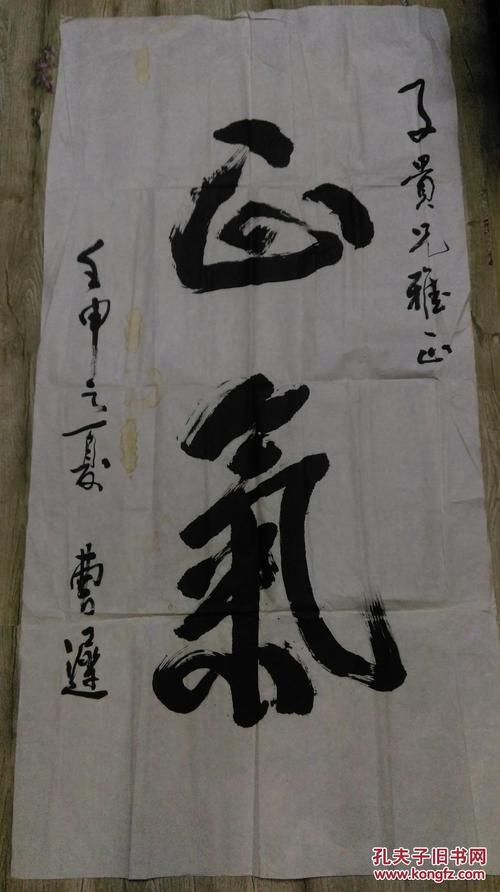 子貴兄雅正
正氣
壬申之夏 曹遲
孔夫子旧书网
www.kongfz.com